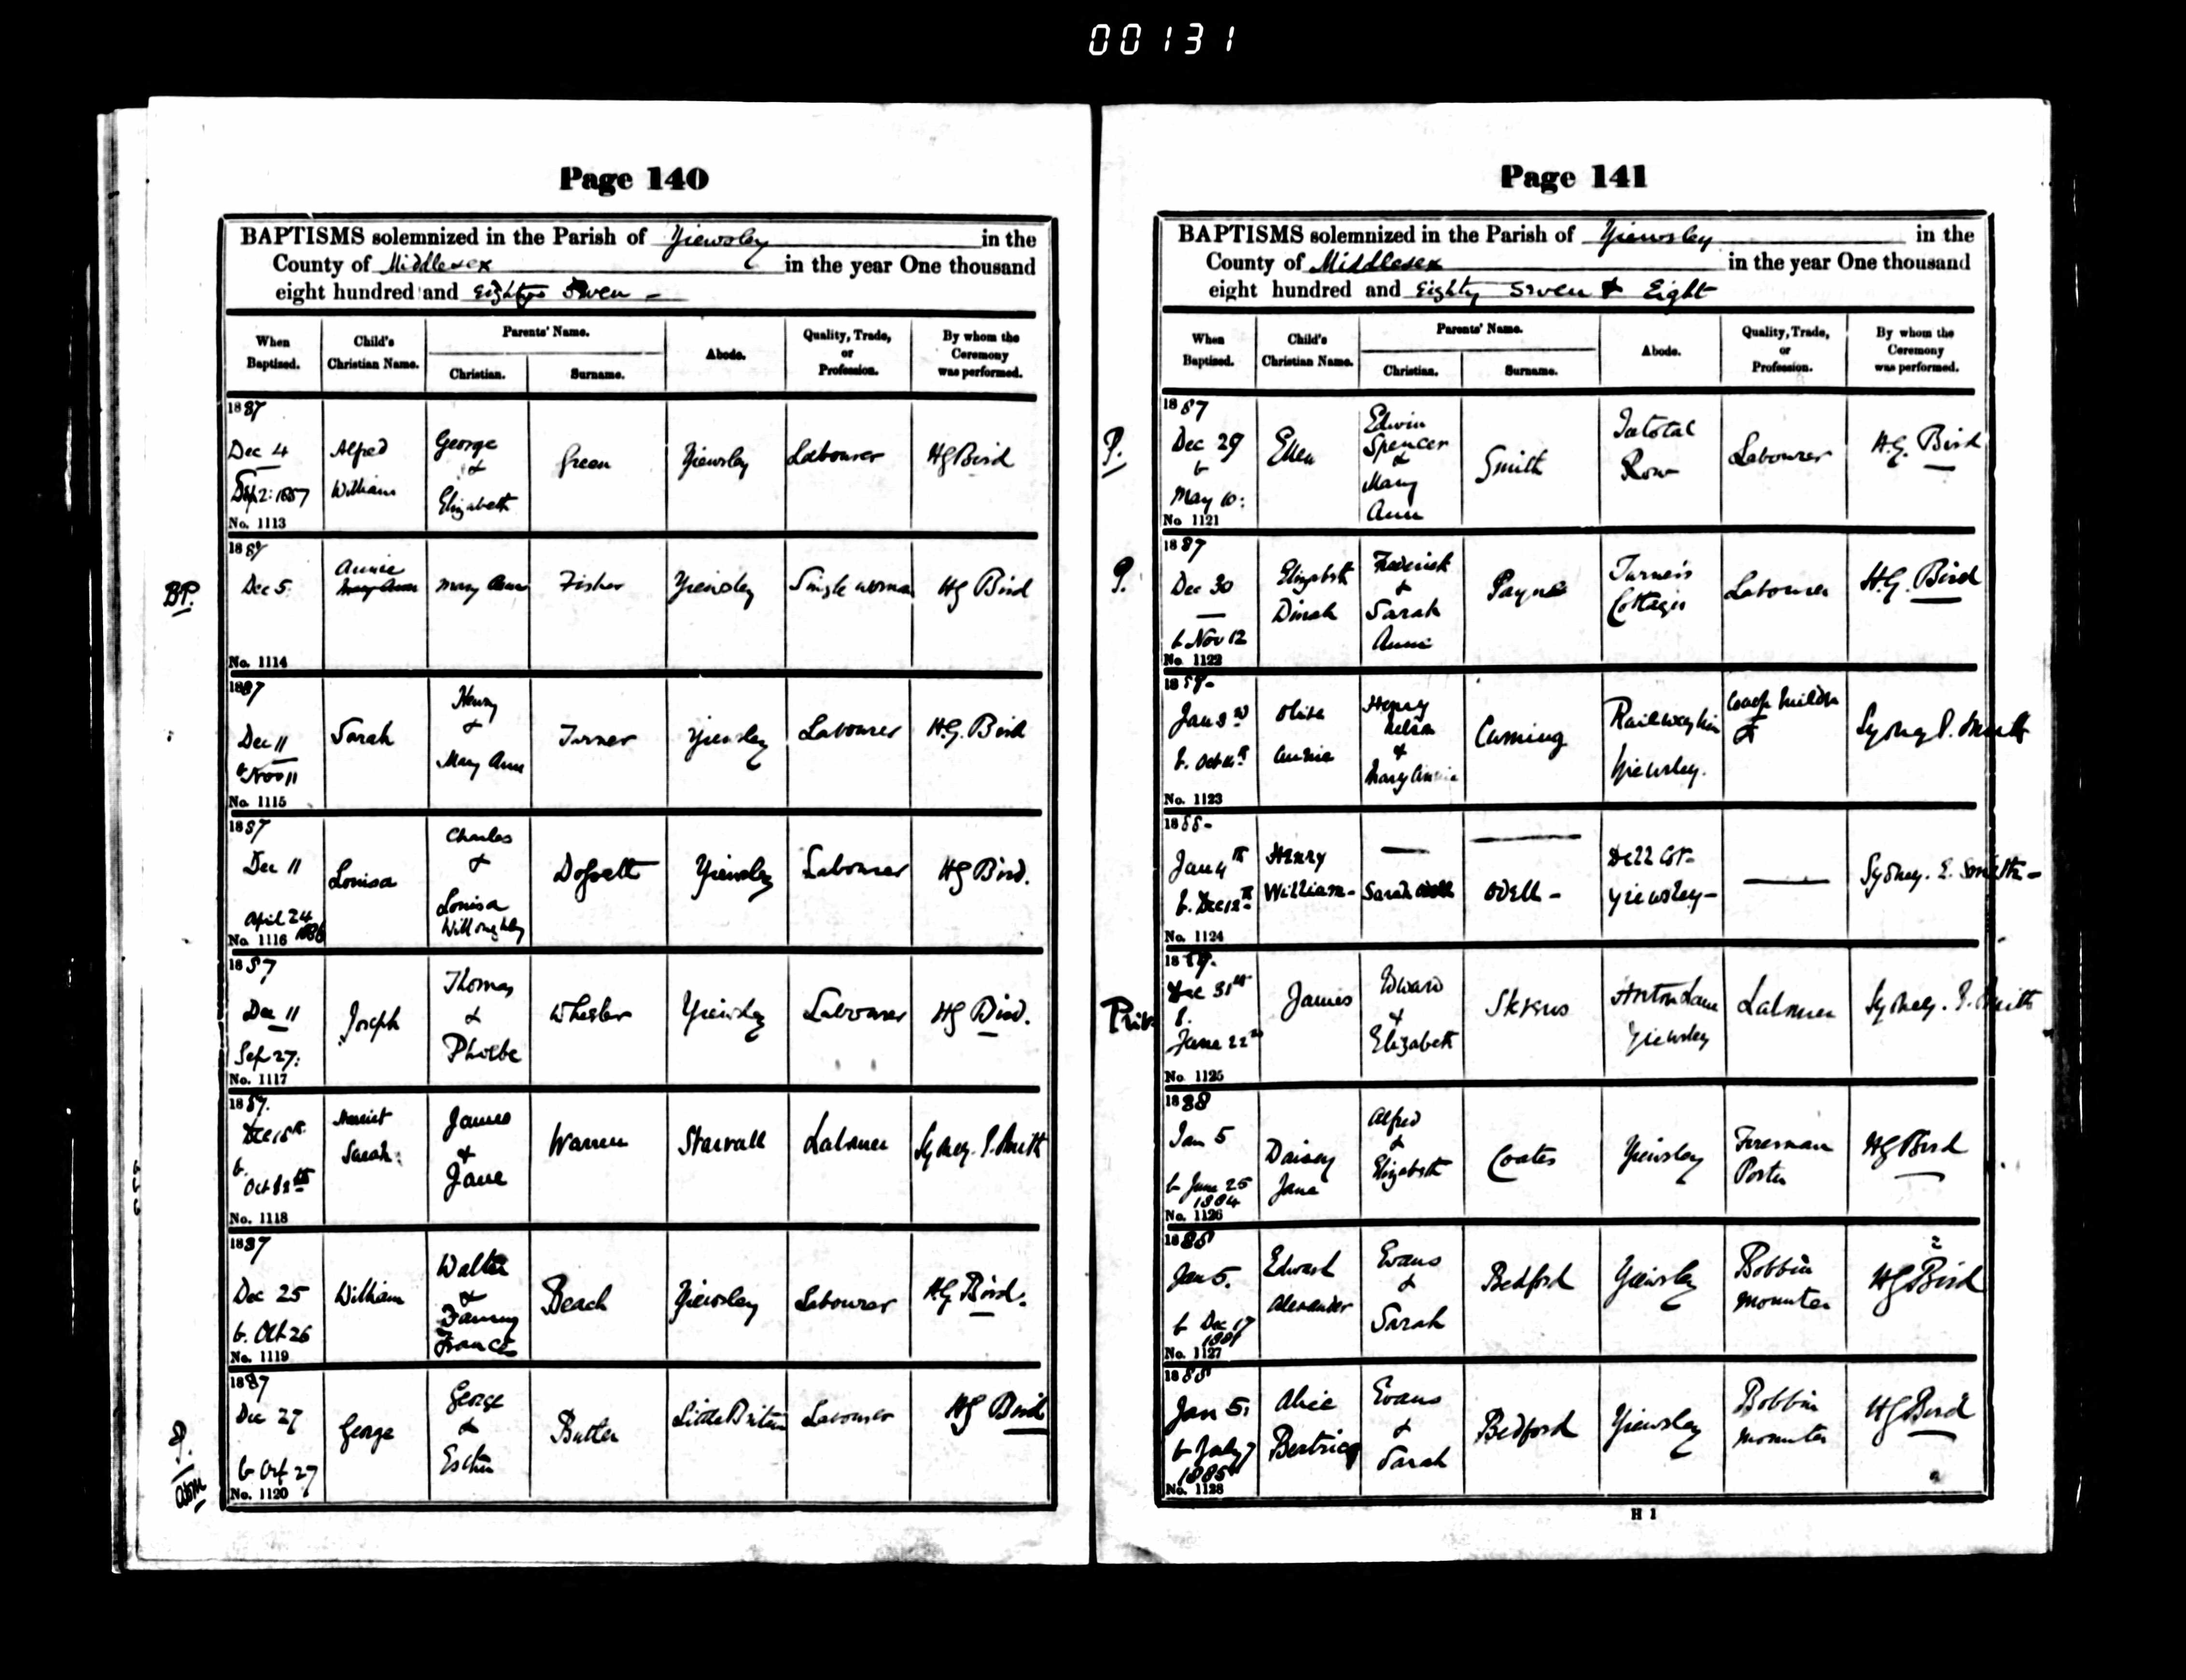 00131
Page 140
BAPTISMS solemnized in the Parish of Yiewsley in the
County of Middlesex in the year One thousand
eight hundred and Eighty Seven -
When Baptized. Child's Christian Name. Parents' Name. Christian. Surname. Abode. Quality, Trade, or Profession. By whom the Ceremony was performed.
1887 Dec 4 Sep 2: 1887 Alfred William George & Elizabeth Green Yiewsley Labourer HG Bird
No. 1113
BP. 1887 Dec 5. Annie Mary Ann Fisher Yiewsley Single woman HG Bird
No. 1114
1887 Dec 11 b Nov 11 Sarah Henry & Mary Ann Turner Yiewsley Labourer H.G. Bird
No. 1115
1887 Dec 11 April 24 1886 Louisa Charles & Louisa Willoughby Yiewsley Labourer HG Bird.
No. 1116
1887 Dec 11 Sep 27: Joseph Thomas & Phoebe Wheeler Yiewsley Labourer HG Bird.
No. 1117
1887. b. Harriet Sarah. James & Jane Warren Labourer Sydney. Smith
No. 1118
1887 Dec 25 b. Oct 26 William Walter & Fanny Frances Beach Yiewsley Labourer H.G. Bird.
No. 1119
P. 1887 Dec 27 b Oct 27 George George & Esther Butler Little Britain Labourer HG Bird
No. 1120
Page 141
BAPTISMS solemnized in the Parish of Yiewsley in the
County of Middlesex in the year One thousand
eight hundred and Eighty Seven & Eight
When Baptized. Child's Christian Name. Parents' Name. Christian. Surname. Abode. Quality, Trade, or Profession. By whom the Ceremony was performed.
P. 1887 Dec 29 b May 10: Ellen Edwin Spencer & Mary Ann Smith Row Labourer H.G. Bird
No. 1121
P. 1887 Dec 30 b Nov 12 Elizabeth Dinah Frederick & Sarah Annie Payne Turner's Cottages Labourer H.G. Bird
No. 1122
1888- b. Olive Annie Henry Nelson & Cuming Yiewsley. Sydney Smith
No. 1123
1888- Jan 4th b. Dec 12th Henry William- Sarah Odell - Dell Cot- Yiewsley- Sydney. E. Smith-
No. 1124
Priv. 1887. Dec 31st b. June 22nd James Edward & Elizabeth Yiewsley Labourer Sydney. Smith
No. 1125
1888 Jan 5 b June 25 1884 Daisy Jane Alfred & Elizabeth Coates Yiewsley Foreman Porter HG Bird
No. 1126
1888 Jan 5. b Dec 17 Edward Alexander Evans & Sarah Bedford Yiewsley Bobbin mounter HG Bird
No. 1127
1888 Jan 5. b July 7 1885 Alice Beatrice Evans & Sarah Bedford Yiewsley Bobbin mounter HG Bird
No. 1128
H 1